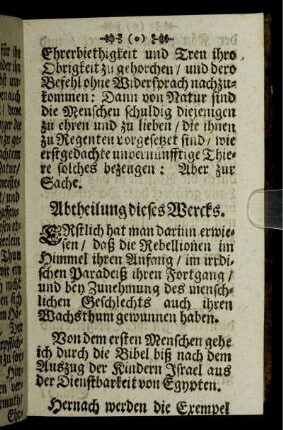 (o)
Ehrerbiethigkeit und Treu ihro
Obrigkeit zu gehorchen / und dero
Befehl ohne Widersprach nachzu-
kommen: Dann von Natur sind
die Menschen schuldig diejenigen
zu ehren und zu lieben / die ihnen
zu Regenten vorgesetzet sind / wie
erstgedachte unvernünfftige Thie-
re solches bezeugen: Aber zur
Sache.
Abtheilung dieses Wercks.
ERstlich hat man darinn erwie-
sen / daß die Rebellionen im
Himmel ihren Anfang / im irrdi-
schen Paradeiß ihren Fortgang /
und bey Zunehmung des mensch-
lichen Geschlechts auch ihren
Wachsthum gewunnen haben.
Von dem ersten Menschen gehe
ich durch die Bibel biß nach dem
Auszug der Kindern Israel aus
der Dienstbarkeit von Egypten.
Hernach werden die Exempel